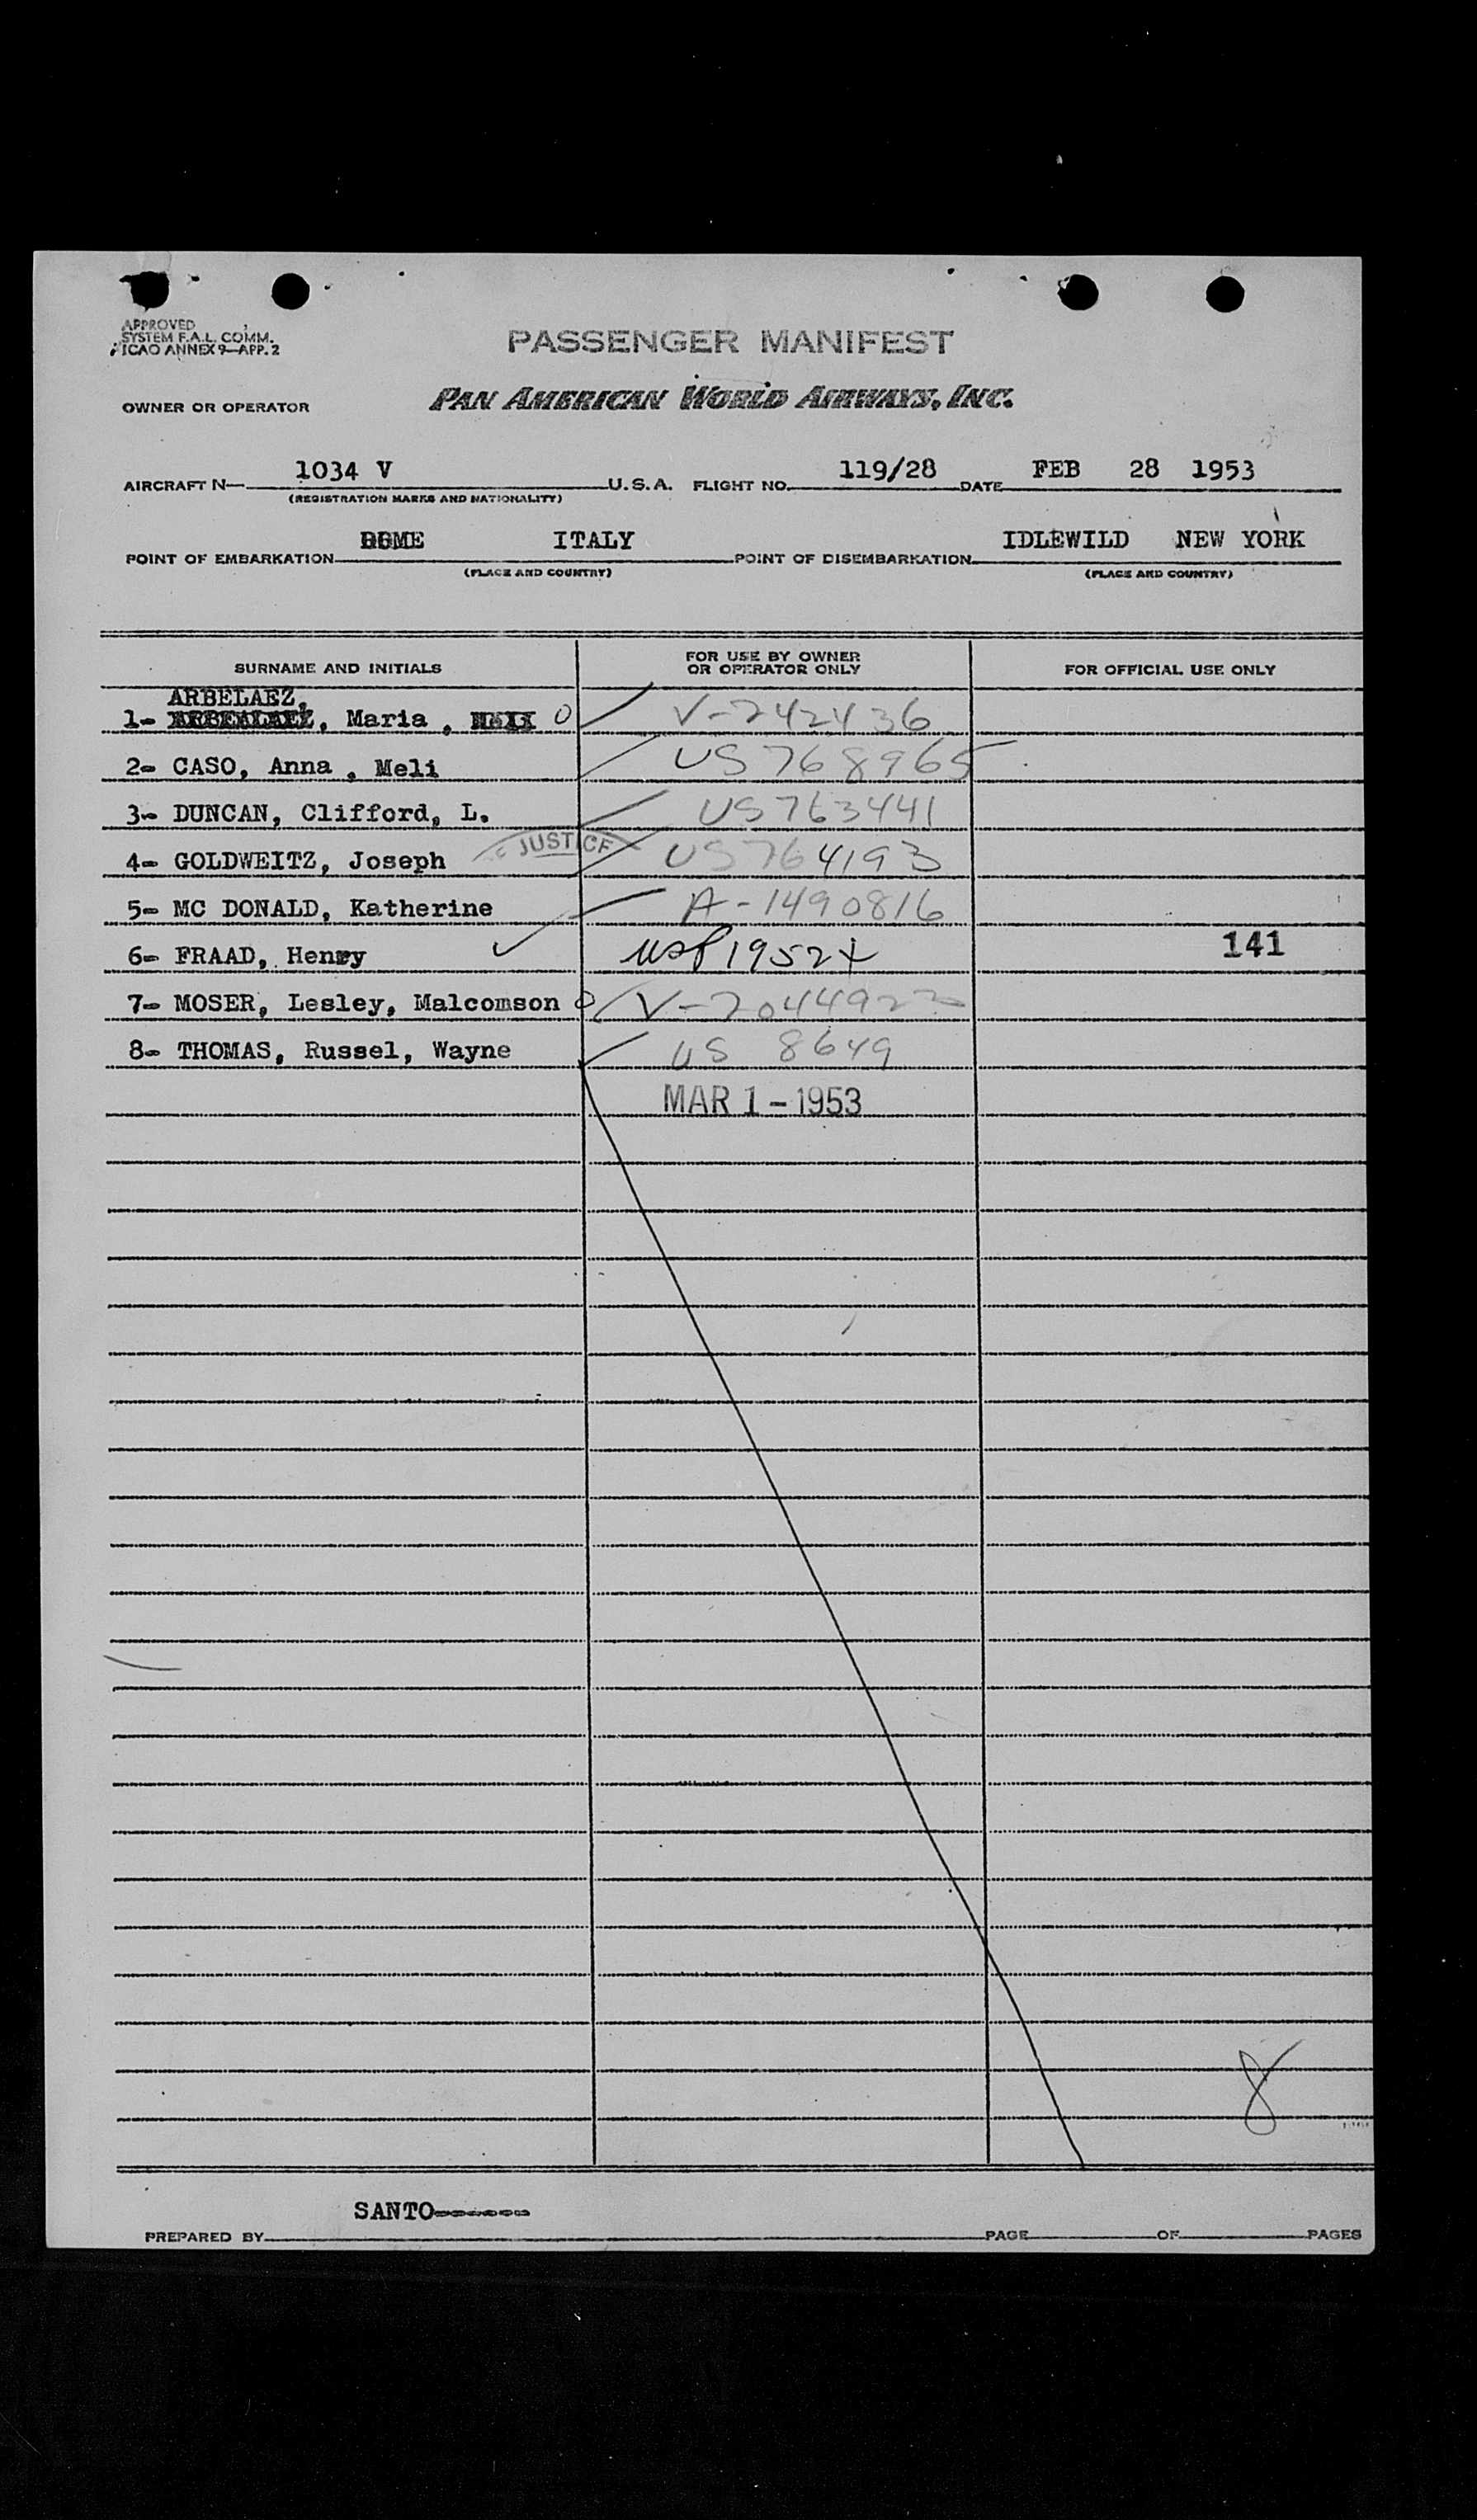 APPROVED
SYSTEM F.A.L. COMM.
ICAO ANNEX 9—APP. 2
PASSENGER MANIFEST
OWNER OR OPERATOR PAN AMERICAN WORLD AIRWAYS, INC.
AIRCRAFT N— 1034 V U.S.A. FLIGHT NO. 119/28 DATE FEB 28 1953
(REGISTRATION MARKS AND NATIONALITY)
POINT OF EMBARKATION ROME ITALY POINT OF DISEMBARKATION IDLEWILD NEW YORK
(PLACE AND COUNTRY) (PLACE AND COUNTRY)
SURNAME AND INITIALS FOR USE BY OWNER OR OPERATOR ONLY FOR OFFICIAL USE ONLY
ARBELAEZ,
1- , Maria , 0 V-242436
2- CASO, Anna , Meli US 768965
3- DUNCAN, Clifford, L. US 763441
JUSTICE
4- GOLDWEITZ, Joseph US 764193
5- MC DONALD, Katherine A-1490816
6- FRAAD, Henry 19524 141
7- MOSER, Lesley, Malcomson 0 V-2044922
8- THOMAS, Russel, Wayne US 8649
MAR 1 - 1953
8
SANTO------
PREPARED BY PAGE OF PAGES